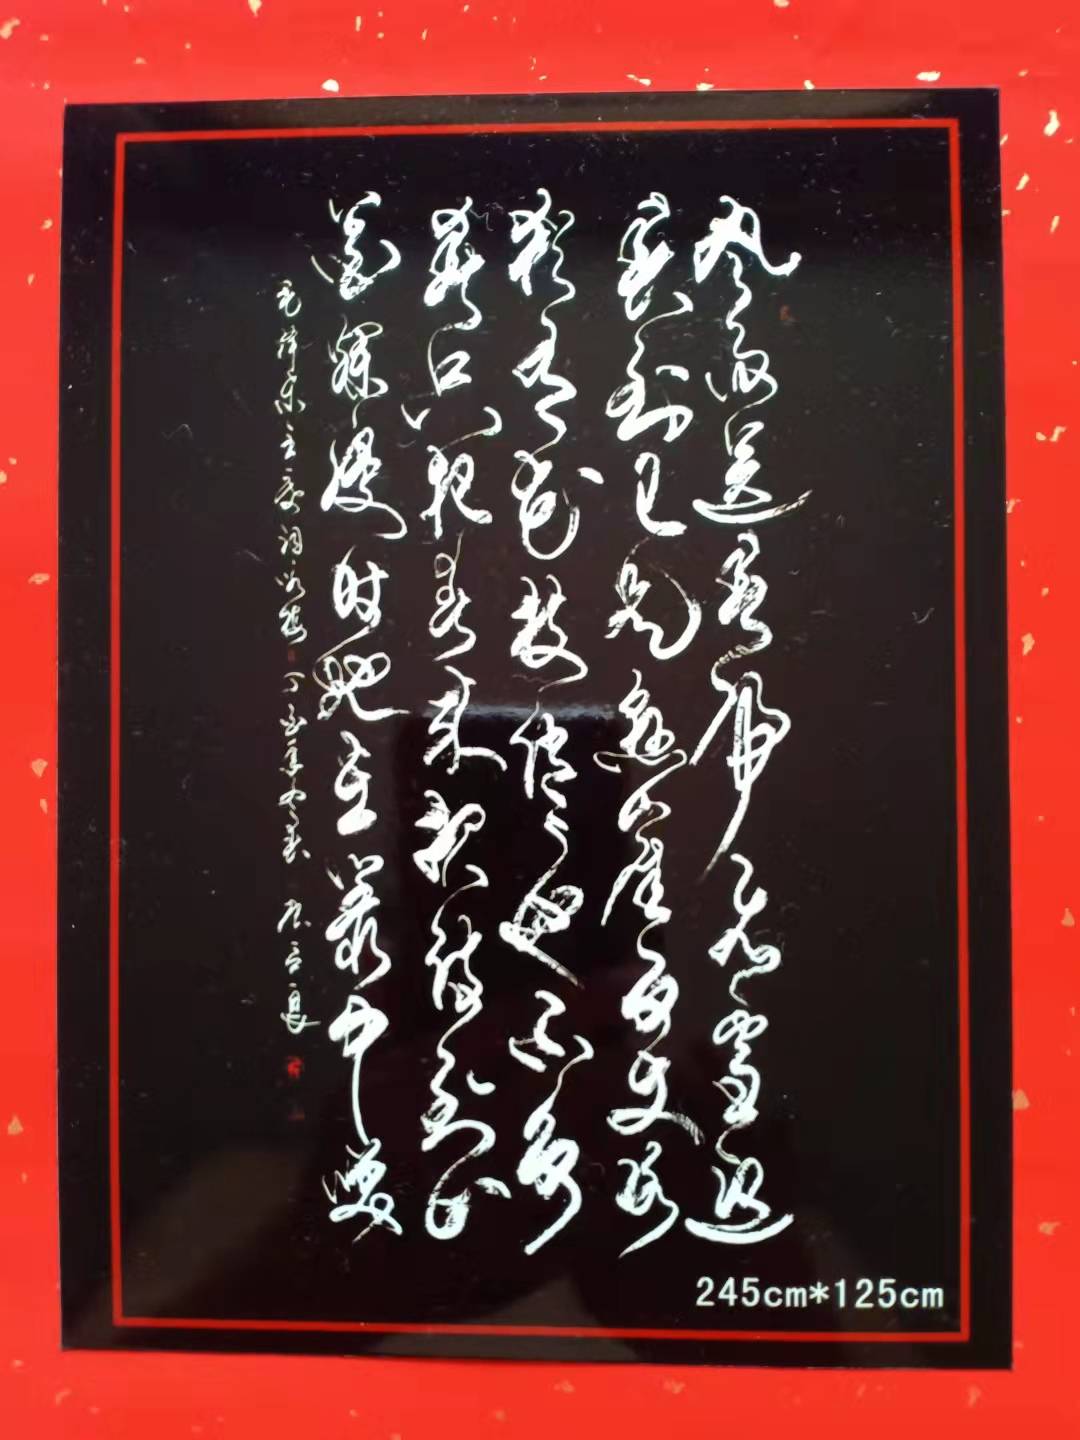 风雨送春归飞雪迎
春到已是悬崖百丈冰
犹有花枝俏俏也不争
春只把春来报待到山
花烂漫时她在丛中笑
毛泽东主席词咏梅
245cm*125cm